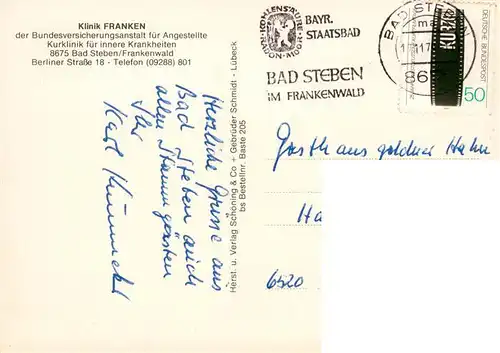 Klinik FRANKEN
der Bundesversicherungsanstalt für Angestellte
Kurklinik für innere Krankheiten
8675 Bad Steben/Frankenwald
Berliner Straße 18 - Telefon (09288) 801
Herzliche Grüsse aus
Bad Steben auch
allen Stammgästen
Ihr
Karl
Herst. u. Verlag Schöning & Co + Gebrüder Schmidt - Lübeck
bs Bestellnr. Baste 205
KOHLENSÄURE
RADON-MOOR
BAYR.
STAATSBAD
BAD STEBEN
IM FRANKENWALD
BAD STEBEN
DEUTSCHE BUNDESPOST
50
Gasthaus goldner Hahn
Ha
6520